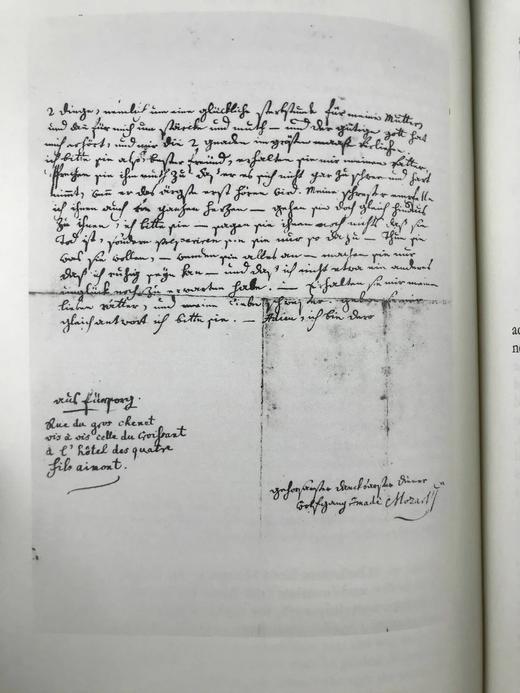 2 dinge, nemlich um eine glückliche sterbstunde für meine Mutter,
und dan für mich um stärcke und muth — und der gütige gott hat
mich erhört, und mir die 2 gnaden im grösten maaße verliehen.
ich bitte sie also, bester freünd, erhalten sie mir meinen vatter,
sprechen sie ihm muth zu daß er es sich nicht gar zu schwer und hart
nimmt, wenn er das ärgste erst hören wird. Meine schwester empfehle
ich ihnen auch von ganzen herzen — gehen sie doch gleich hinaus
zu ihnen, ich bitte sie — sagen sie ihnen noch nichts daß sie
Tod ist, sondern præpariren sie sie nur so dazu — Thun sie
was sie wollen, — wenden sie alles an — machen sie nur
daß ich ruhig seyn kan — und daß ich nicht etwa ein anderes
unglück noch zu erwarten habe. — Erhalten sie mir meinen
lieben vatter, und meine liebe schwester. geben sie mir
gleich antwort ich bitte sie. — Adieu, ich bin dero
aus fürsorg.
Rue du gros chenet
vis à vis celle du Croissant
à l'hôtel des quatre
fils aimont.
gehorsamster danckbarster diener
Wolfgang Amadè Mozart